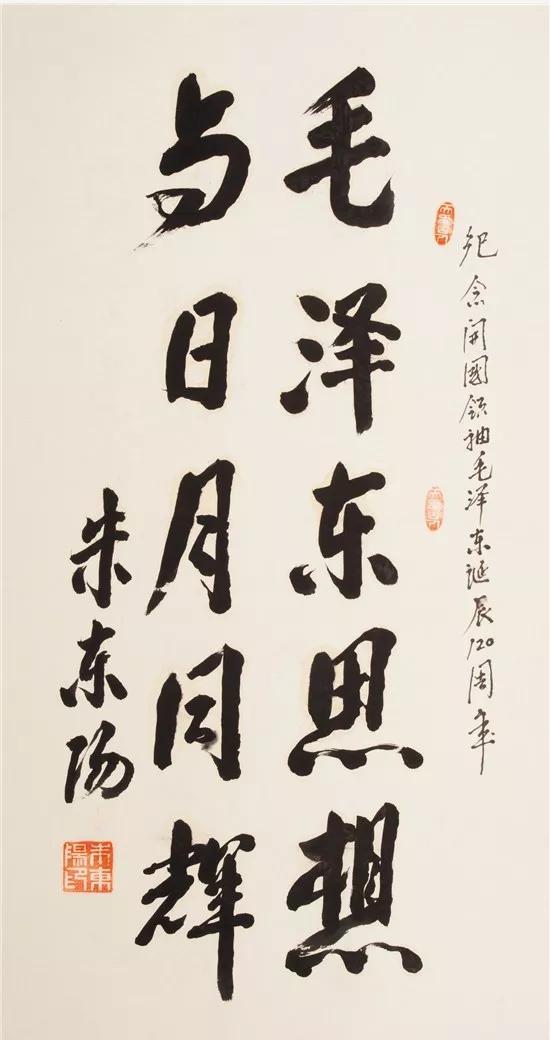 纪念开國领袖毛泽东诞辰120周年
毛泽东思想
与日月同辉
朱东阳
朱東陽印